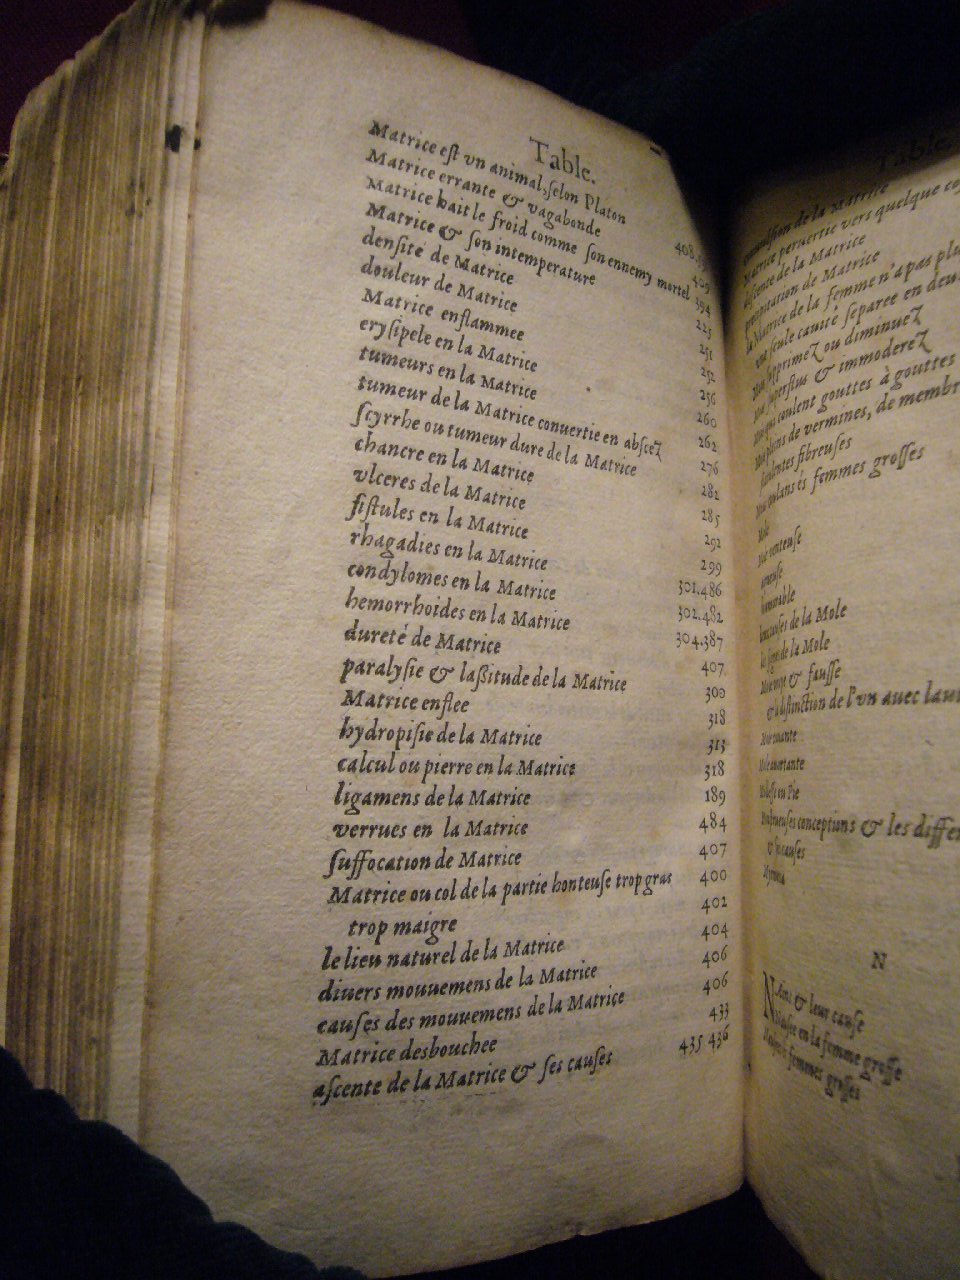 Table.
Matrice eſt vn animal, ſelon Platon
Matrice errante & vagabonde 409
Matrice hait le froid comme ſon ennemy mortel 394
Matrice & ſon intemperature 225
denſité de Matrice 251
douleur de Matrice 252
Matrice enflammee 256
eryſipele en la Matrice 260
tumeurs en la Matrice 262
tumeur de la Matrice conuertie en abſcez 276
ſcyrrhe ou tumeur dure de la Matrice 282
chancre en la Matrice 285
vlceres de la Matrice 292
fiſtules en la Matrice 299
rhagadies en la Matrice 301.486
condylomes en la Matrice 302.482
hemorrhoides en la Matrice 304.387
dureté de Matrice 407
paralyſie & laſsitude de la Matrice 300
Matrice enflee 318
hydropiſie de la Matrice 313
calcul ou pierre en la Matrice 318
ligamens de la Matrice 189
verrues en la Matrice 484
ſuffocation de Matrice 407
Matrice ou col de la partie honteuſe trop gras 400
trop maigre 402
le lieu naturel de la Matrice 404
diuers mouuemens de la Matrice 406
cauſes des mouuemens de la Matrice 406
Matrice desbouchee 433
aſcente de la Matrice & ſes cauſes 435.436
Table
de la Matrice
Matrice peruertie vers quelque
deſcente de la Matrice
precipitation de Matrice
la Matrice de la femme n'a pas
vne ſeule cauité ſeparee en
ſupprimez ou diminuez
ſuperflus & immoderez
qui coulent gouttes à gouttes
pleins de vermines, de
fibreuſes
femmes groſſes
Mole
Mole venteuſe
de la Mole
de la Mole
& fauſſe
& diſtinction de l'vn auec
conceptions & les
& ſes cauſes
N
& leur cauſe
en la femme groſſe
femmes groſſes